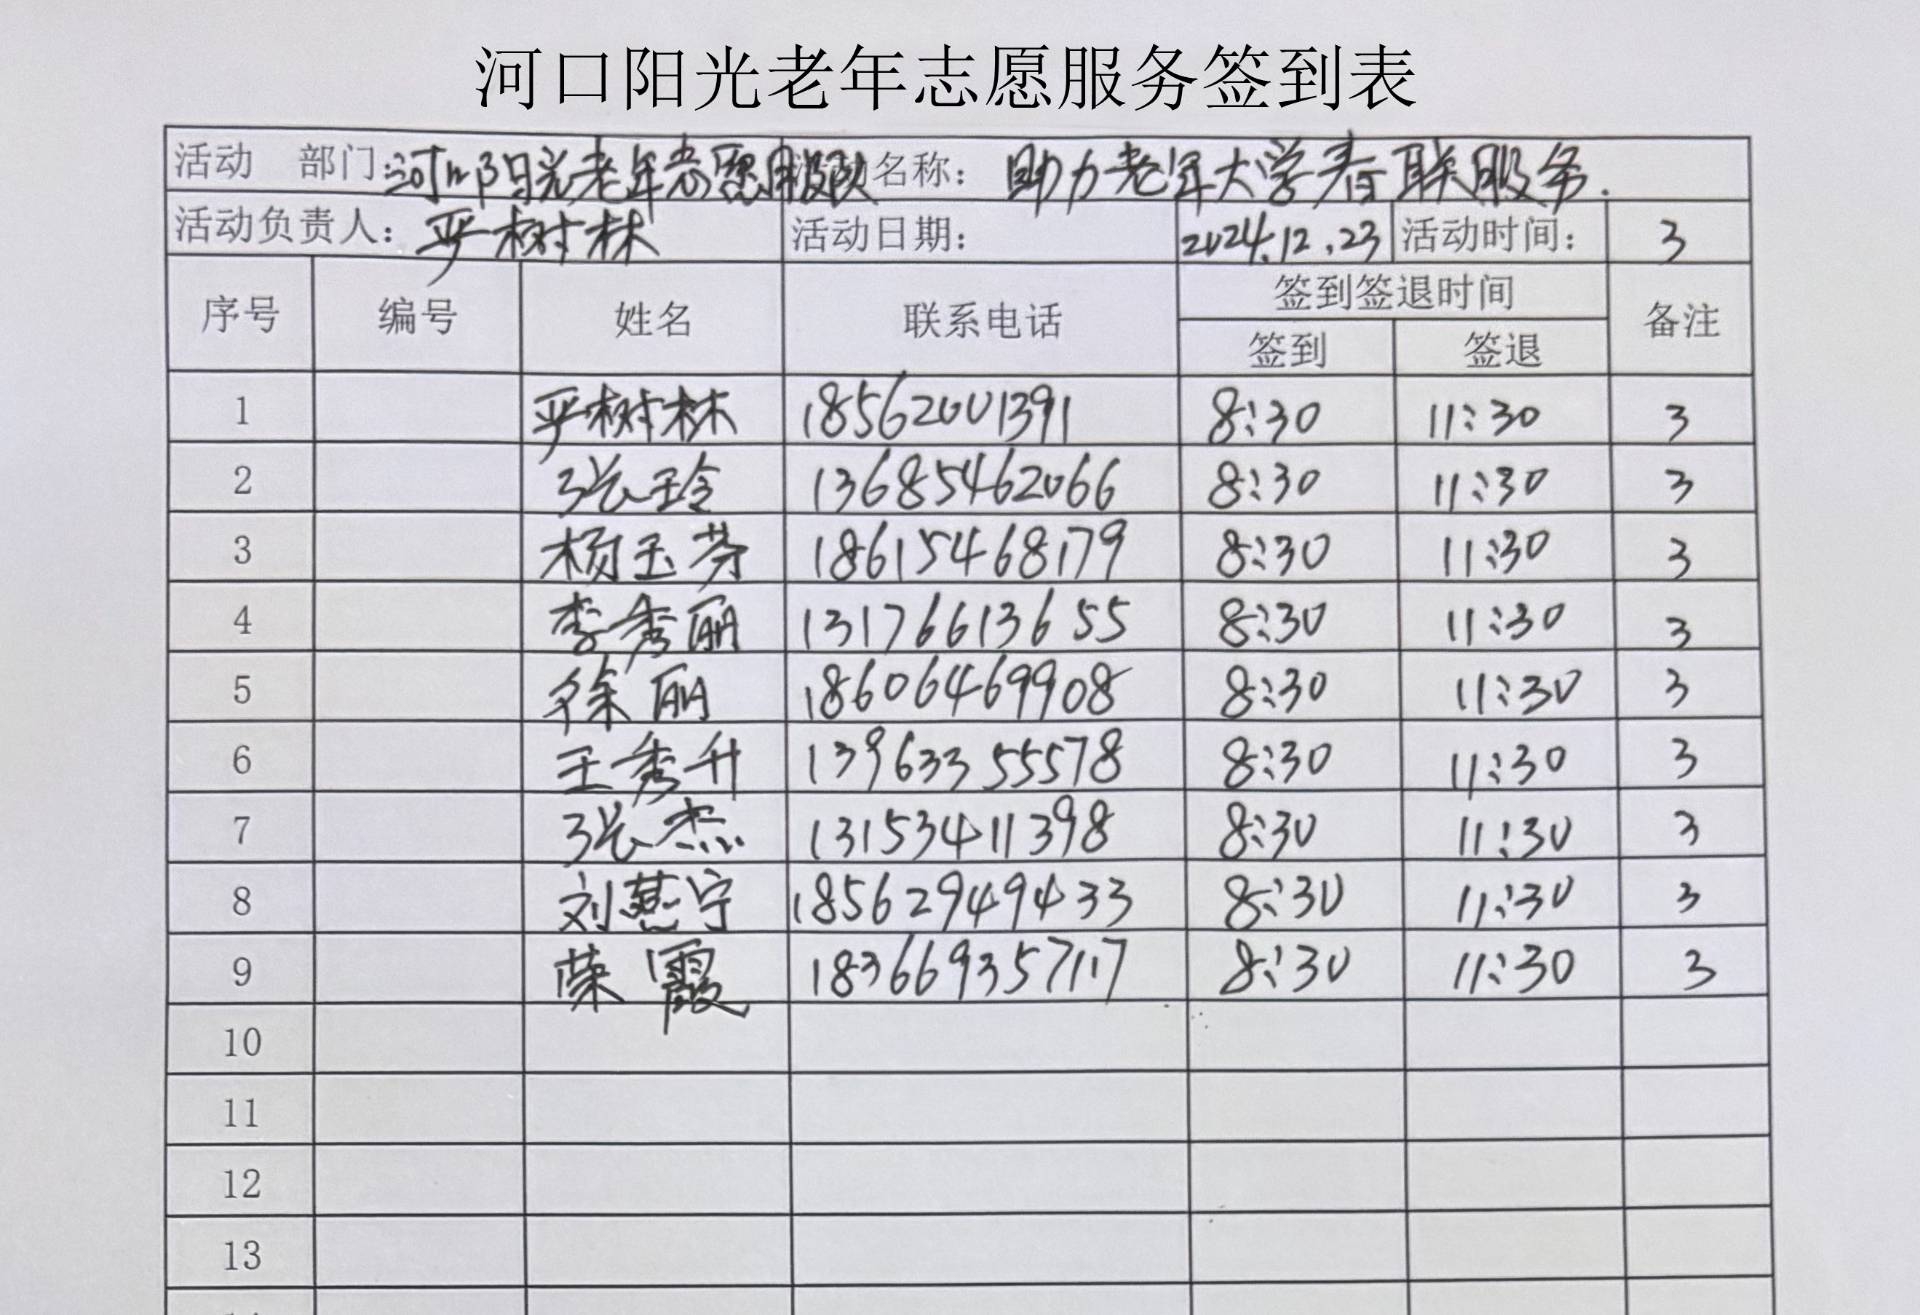 河口阳光老年志愿服务签到表
活动 部门: 河口阳光老年志愿服务队 活动名称: 助力老年大学春联服务.
活动负责人: 严树林 活动日期: 2024.12.23 活动时间: 3
序号 编号 姓名 联系电话 签到签退时间 备注
签到 签退
1 严树林 18562001391 8:30 11:30 3
2 张玲 13685462066 8:30 11:30 3
3 杨玉芬 18615468179 8:30 11:30 3
4 李秀丽 13176613655 8:30 11:30 3
5 徐丽 18606469908 8:30 11:30 3
6 王秀升 13963355578 8:30 11:30 3
7 张杰 13153411398 8:30 11:30 3
8 刘燕宁 18562949433 8:30 11:30 3
9 荣霞 183669357117 8:30 11:30 3
10
11
12
13